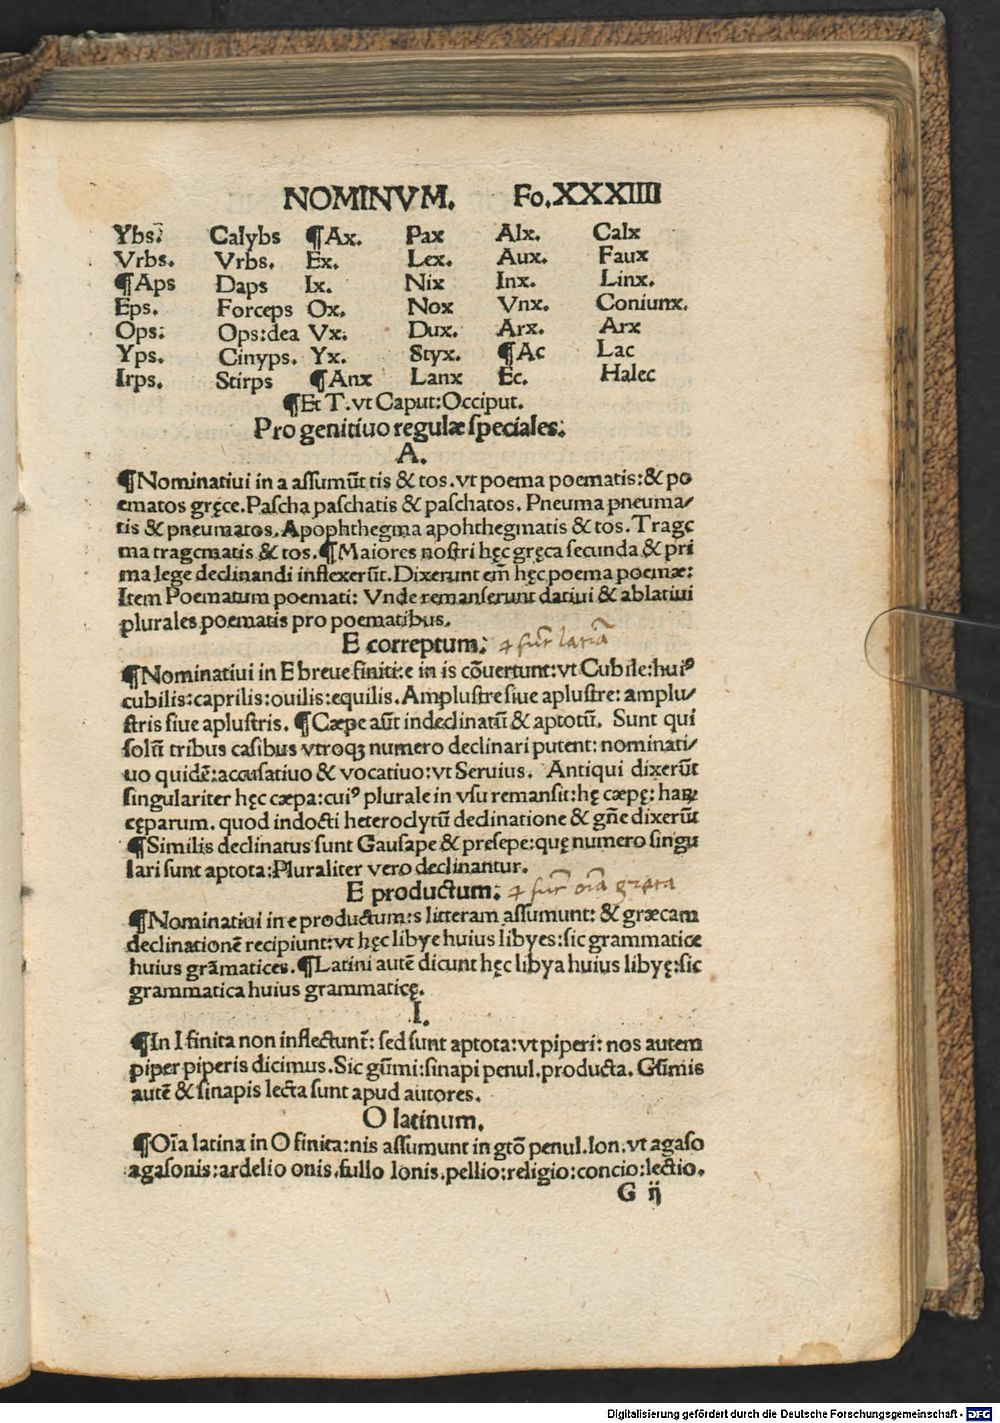 NOMINVM. Fo.XXXIIII
Ybs: Calybs ¶Ax. Pax Alx. Calx
Vrbs. Vrbs. Ex. Lex. Aux. Faux
¶Aps Daps Ix. Nix Inx. Linx.
Eps. Forceps Ox. Nox Vnx. Coniunx.
Ops: Ops:dea Vx. Dux. Arx. Arx
Yps. Cinyps. Yx. Styx. ¶Ac Lac
Irps. Stirps ¶Anx Lanx Ec. Halec
¶Et T.vt Caput:Occiput.
Pro genitiuo regulæ ſpeciales:
A.
¶Nominatiui in a aſſumūt tis & tos.vt poema poematis:& po
ematos gręce.Paſcha paſchatis & paſchatos. Pneuma pneuma/
tis & pneumatos. Apophthegma apohthegmatis & tos. Tragę
ma tragematis & tos. ¶Maiores noſtri hęc gręca ſecunda & pri
ma lege declinandi inflexerūt. Dixerunt em̄ hęc poema poemæ:
Item Poematum poemati: Vnde remanſerunt datiui & ablatiui
plurales poematis pro poematibus.
E correptum:
¶Nominatiui in E breue finiti:e in is cōuertunt:vt Cubile:huiꝰ
cubilis:caprilis:ouilis:equilis. Ampluſtre ſiue apluſtre: amplu/
ſtris ſiue apluſtris. ¶Cæpe aūt indeclinatū & aptotū. Sunt qui
ſolū tribus caſibus vtroqꝫ numero declinari putent: nominati/
uo quidē:accuſatiuo & vocatiuo:vt Seruius. Antiqui dixerūt
ſingulariter hęc cæpa:cuiꝰ plurale in vſu remanſit:hę cæpę: haꝝ
cęparum. quod indocti heteroclytū declinatione & gn̄e dixerūt
¶Similis declinatus ſunt Gauſape & preſepe:quę numero ſingu
lari ſunt aptota:Pluraliter vero declinantur.
E productum:
¶Nominatiui in e productum:s litteram aſſumunt: & græcam
declinationē recipiunt:vt hęc libye huius libyes:ſic grammatice
huius grāmatices. ¶Latini autē dicunt hęc libya huius libyę:ſic
grammatica huius grammaticę.
I.
¶In I finita non inflectunt̄: ſed ſunt aptota:vt piperi: nos autem
piper piperis dicimus. Sic gūmi:ſinapi penul.producta. Gūmis
autē & ſinapis lecta ſunt apud autores.
O latinum.
¶Oīa latina in O finita:nis aſſumunt in gtō penul.lon.vt agaſo
agaſonis:ardelio onis.fullo lonis.pellio:religio:concio:lectio.
G ij
Digitalisierung gefördert durch die Deutsche Forschungsgemeinschaft - DFG